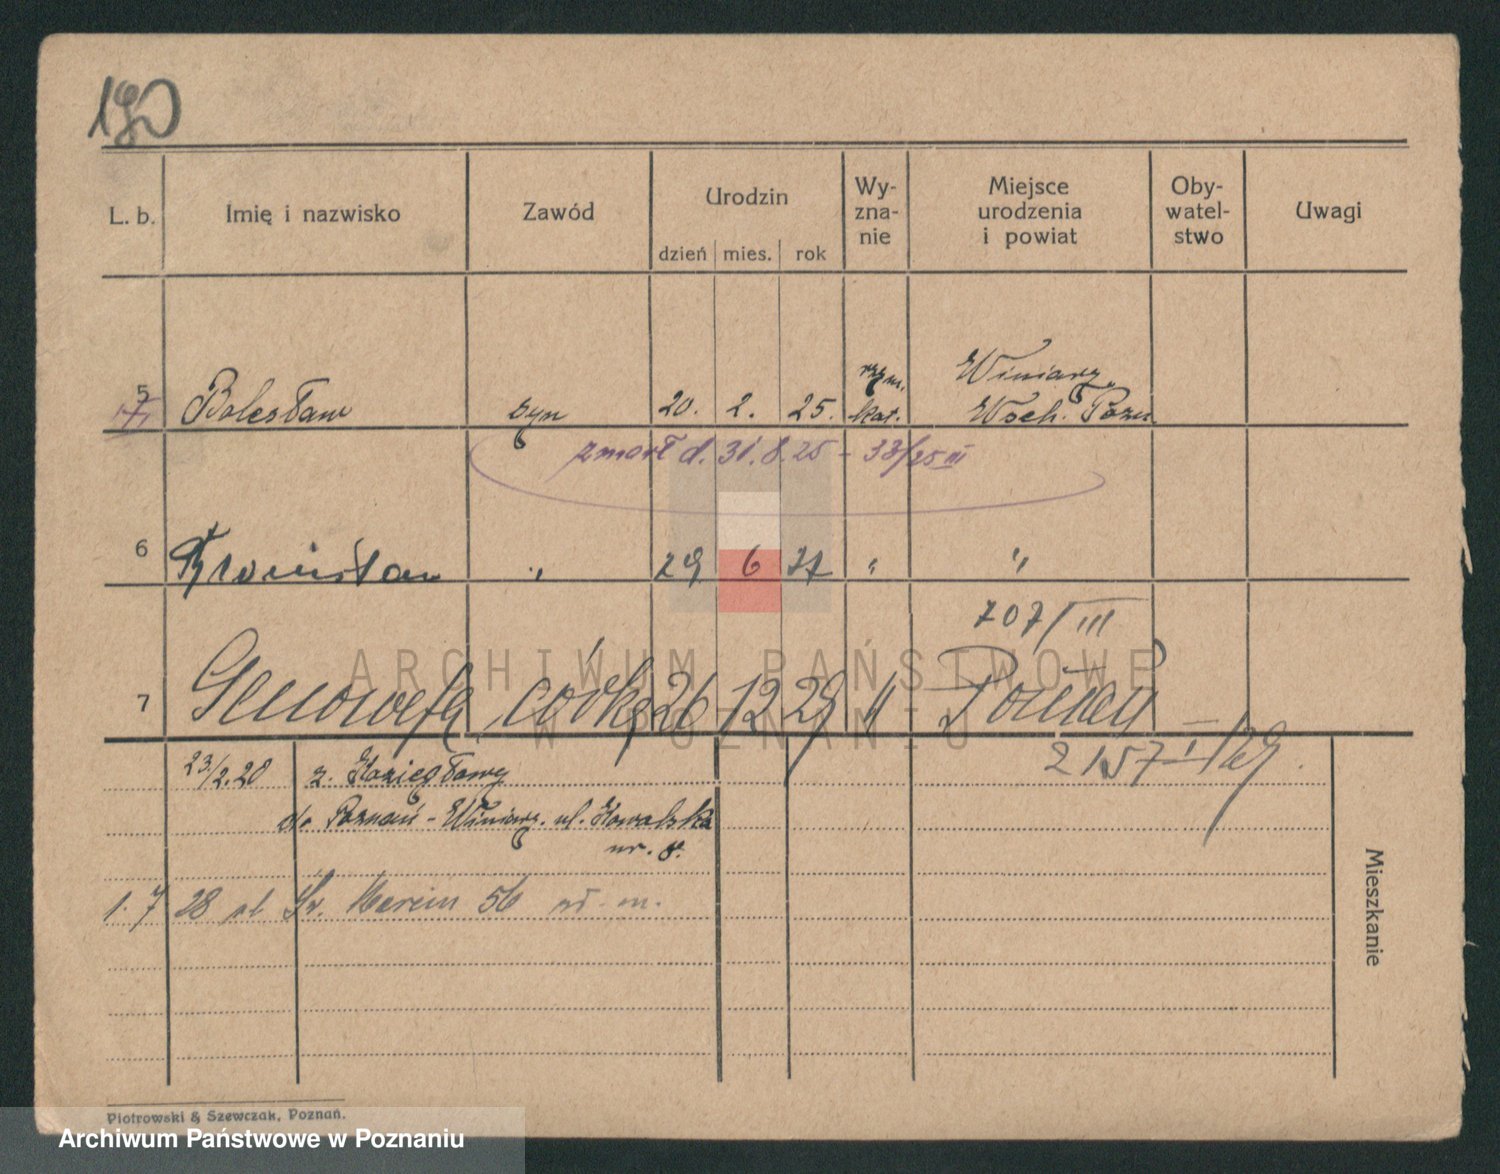 190
L. b. Imię i nazwisko Zawód Urodzin Wy-zna-nie Miejsce urodzenia i powiat Oby-watel-stwo Uwagi
dzień mies. rok
5 Bolesław syn 20. 2. 25. rzym. kat. Winiary Wsch. Pozn
zmarł d. 31.8.25 - 33/25 III
6 Bronisław " 29 6 27 " "
707/III
7 Genowefa córka 26 12 29 " Poznań
2157 I/29.
23/2.28 z. Koziegłowy
do Poznań - Winiary. ul. Kowalska
nr. 8.
1. 7 28 ul Św. Marcin 56
Mieszkanie
Piotrowski & Szewczak, Poznań.
ARCHIWUM PAŃSTWOWE
W POZNANIU
Archiwum Państwowe w Poznaniu